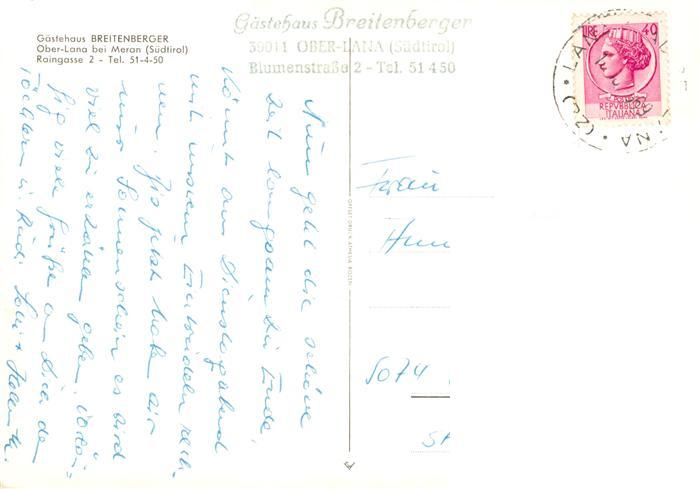 Gästehaus BREITENBERGER
Ober-Lana bei Meran (Südtirol)
Raingasse 2 - Tel. 51-4-50
Gästehaus Breitenberger
39011 OBER-LANA (Südtirol)
Blumenstraße 2 - Tel. 51 4 50
LIRE 40
REPVBBLICA
ITALIANA
Nun geht die schöne
Zeit langsam zu Ende.
Könnt am Dienstagabend
mit unserem
nen. Bis jetzt hatten wir
nur Sonnenschein es wird
viel zu erzählen geben.
viele Grüße an Dich
Töchter u. Rudi
Frau
5074